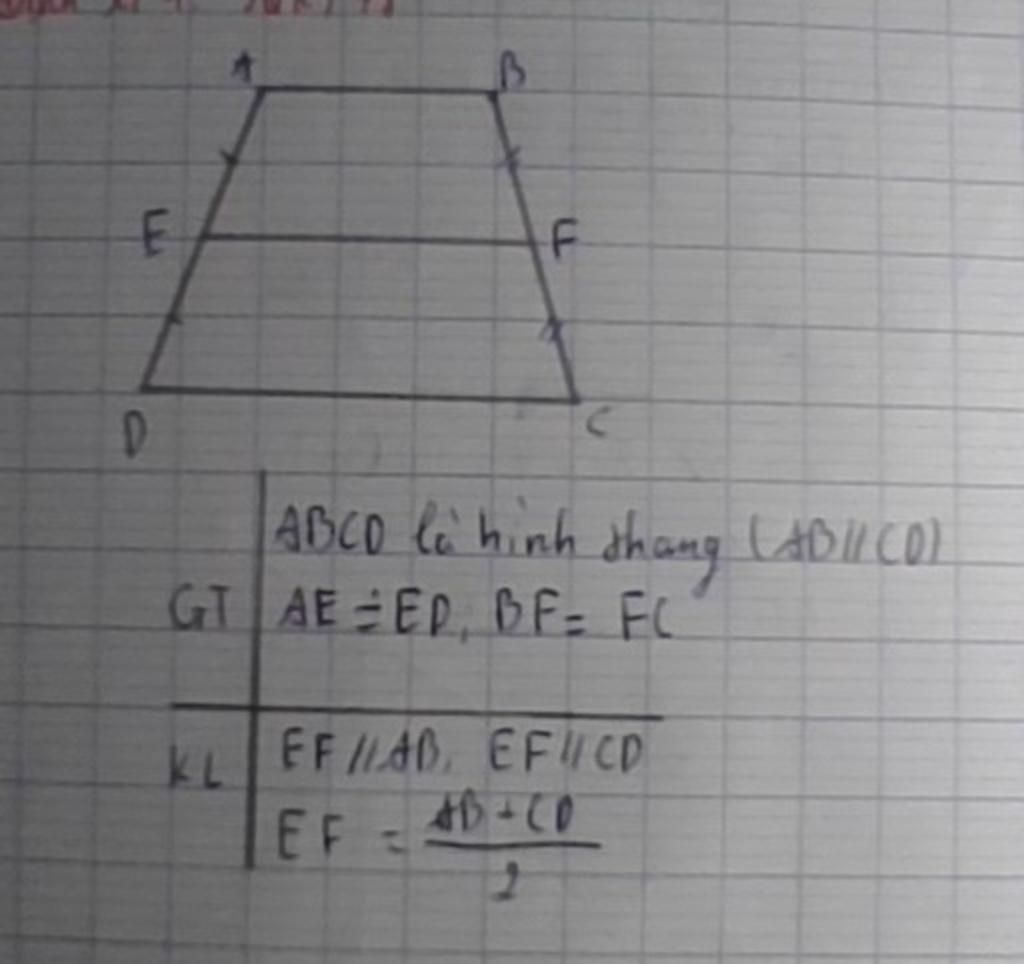 A B
E F
D C
ABCD là hình thang (AB//CD)
GT AE = ED, BF = FC
KL EF//AB, EF//CD
EF = AB + CD
2